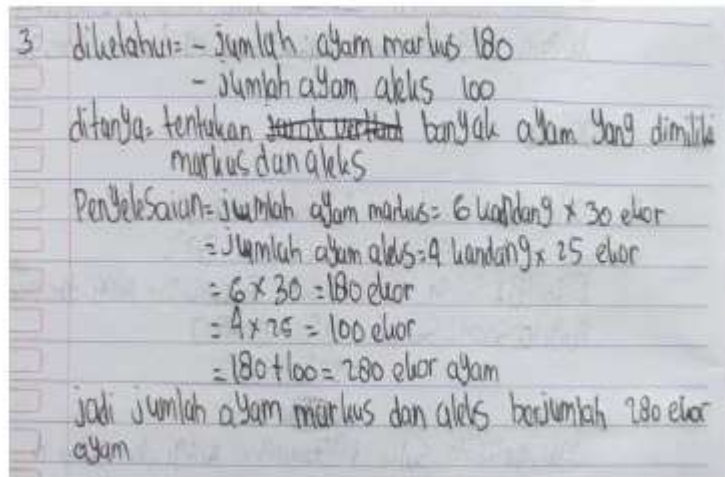 3 diketahui= - jumlah ayam markus 180
- jumlah ayam aleks 100
ditanya= tentukan banyak ayam yang dimiliki
markus dan aleks
Penyelesaian= jumlah ayam markus= 6 kandang x 30 ekor
= jumlah ayam aleks= 4 kandang x 25 ekor
= 6 x 30 = 180 ekor
= 4 x 25 = 100 ekor
= 180 + 100 = 280 ekor ayam
jadi jumlah ayam markus dan aleks berjumlah 280 ekor
ayam